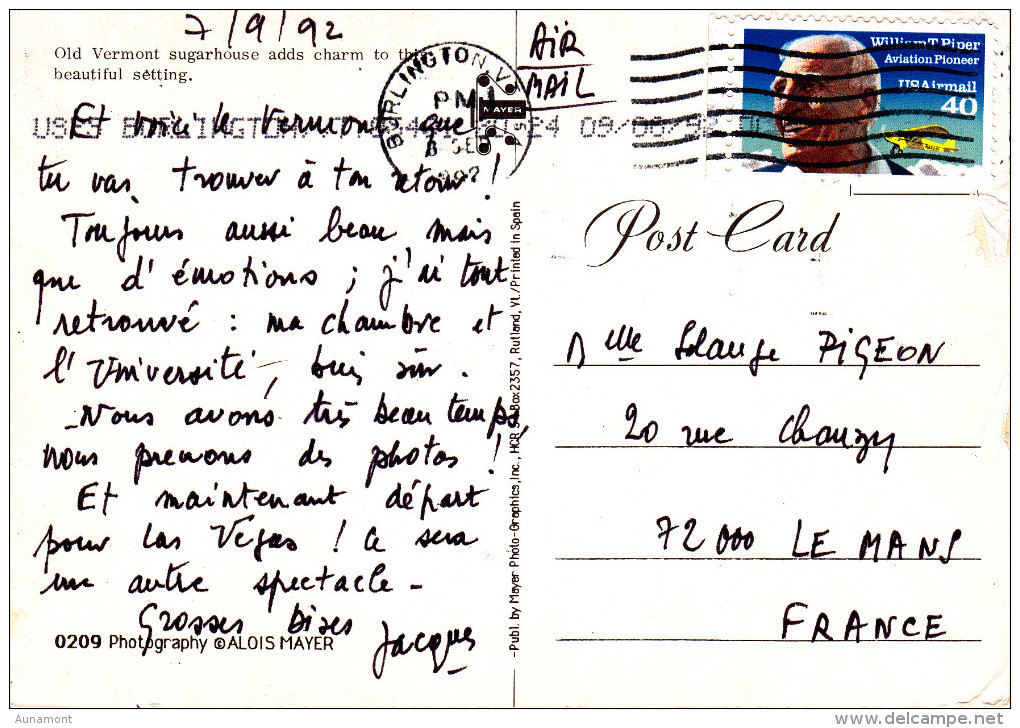 7/9/92
Old Vermont sugarhouse adds charm to this
beautiful setting.
Et voici le Vermont que
tu vas trouver à ton retour !
Toujours aussi beau, mais
que d'émotions ; j'ai tout
retrouvé : ma chambre et
l'Université, bien sûr.
Nous avons très beau temps,
nous prenons des photos !
Et maintenant départ
pour Las Vegas ! Ce sera
un autre spectacle -
Grosses bises
Jacques
0209 Photography © ALOIS MAYER
Aunamont
BURLINGTON, VT
PM
1992
MAYER
-Publ. by Mayer Photo-Graphics, Inc., HCR 34 Box 2357, Rutland, Vt./Printed in Spain
AIR
MAIL
William T. Piper
Aviation Pioneer
USAirmail
40
Post Card
Mlle Solange PIGEON
20 rue Chanzy
72000 LE MANS
FRANCE
delcampe.net